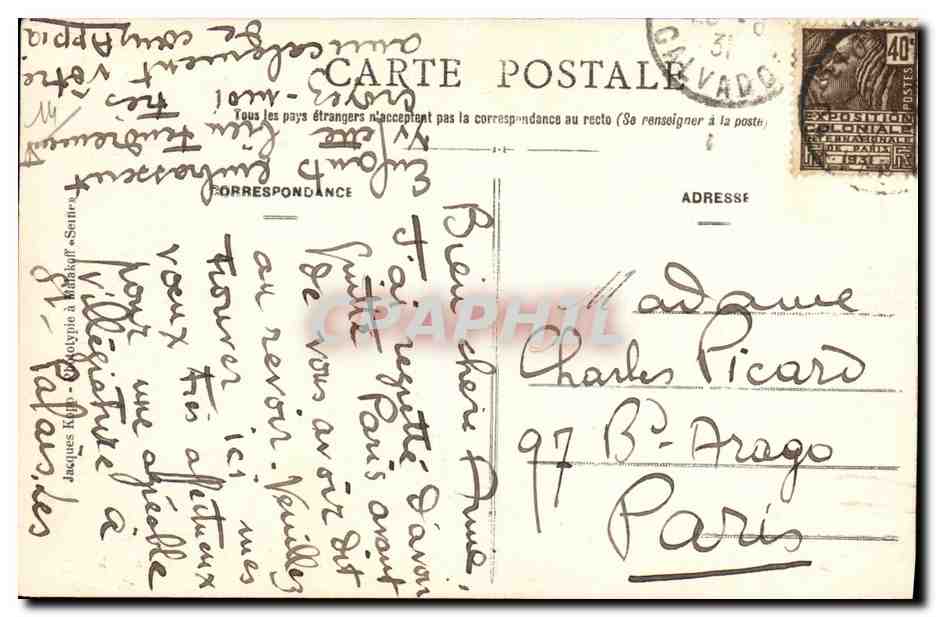 CARTE POSTALE
Tous les pays étrangers n'acceptent pas la correspondance au recto (Se renseigner à la poste)
CORRESPONDANCE
ADRESSE
31
CALVADOS
40c
POSTES
EXPOSITION
COLONIALE
INTERNATIONALE
DE PARIS
1931
Madame
Charles Picard
97 Bd Arago
Paris
Bien chère Amie,
J'ai regretté d'avoir
quitté Paris avant
de vous avoir dit
au revoir. Veuillez
trouver ici mes
vœux très affectueux
pour une agréable
villégiature à
St-Palais. Les
Enfants embrassent
Yvette bien tendrement
Croyez-moi très
amicalement votre
14
Jacques Kopp - Phototypie à Malakoff - Seine
CPAPHIL